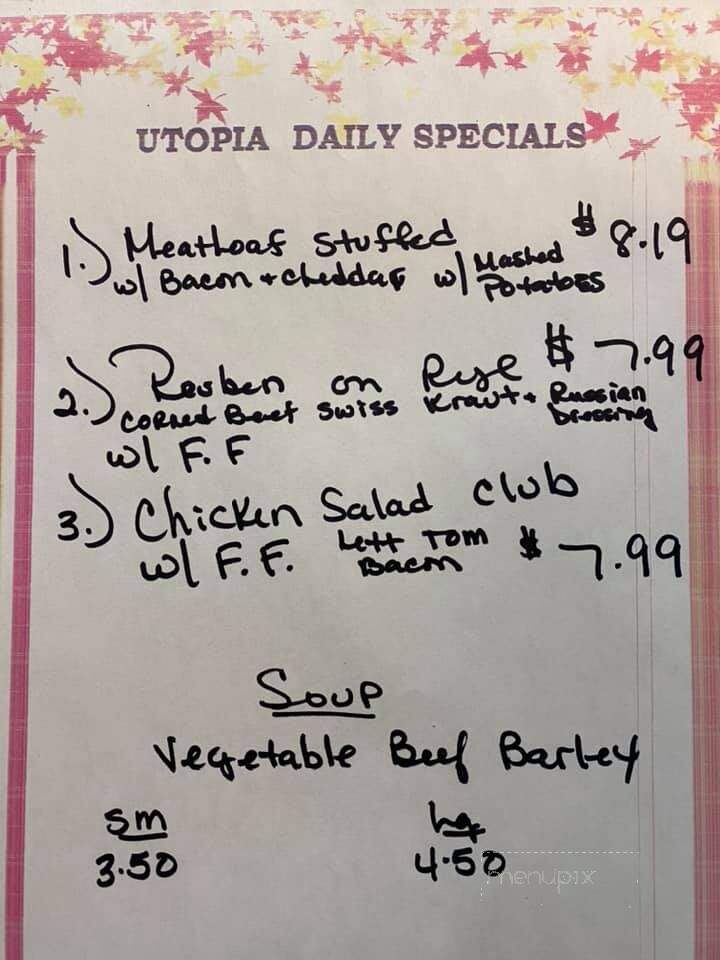 UTOPIA DAILY SPECIALS
1.) Meatloaf Stuffed $8.19
w/ Bacon + cheddar w/ Mashed Potatoes
2.) Reuben on Rye $7.99
Corned Beef Swiss Kraut + Russian Dressing
w/ F.F
3.) Chicken Salad Club
w/ F.F. Lett Tom Bacon $7.99
Soup
Vegetable Beef Barley
sm lg
3.50 4.50
menupix